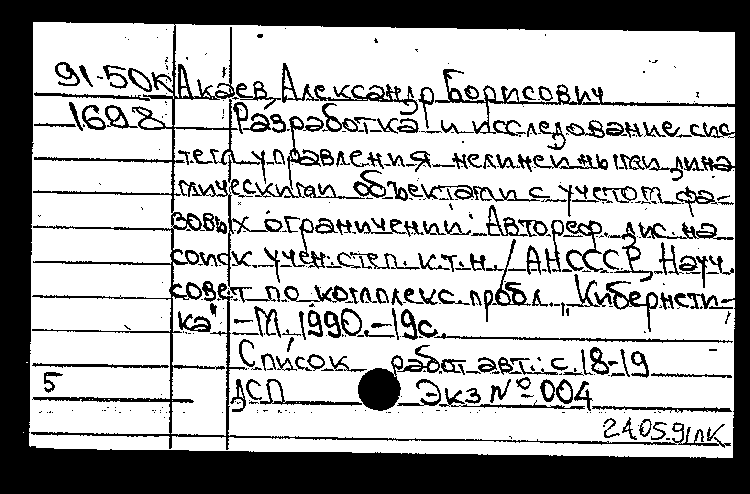 91-50К Акаев Александр Борисович
1698 Разработка и исследование сис
тем управления нелинейными дина
мическими объектами с учетом фа-
зовых ограничений: Автореф. дис. на
соиск учен. степ. к.т.н. / АН СССР, Науч.
совет по комплекс. пробл. „Кибернети-
ка" –М. 1990.–19с.
Список работ авт.: с. 18-19
5 ДСП Экз № 004
24.05.91ЛК